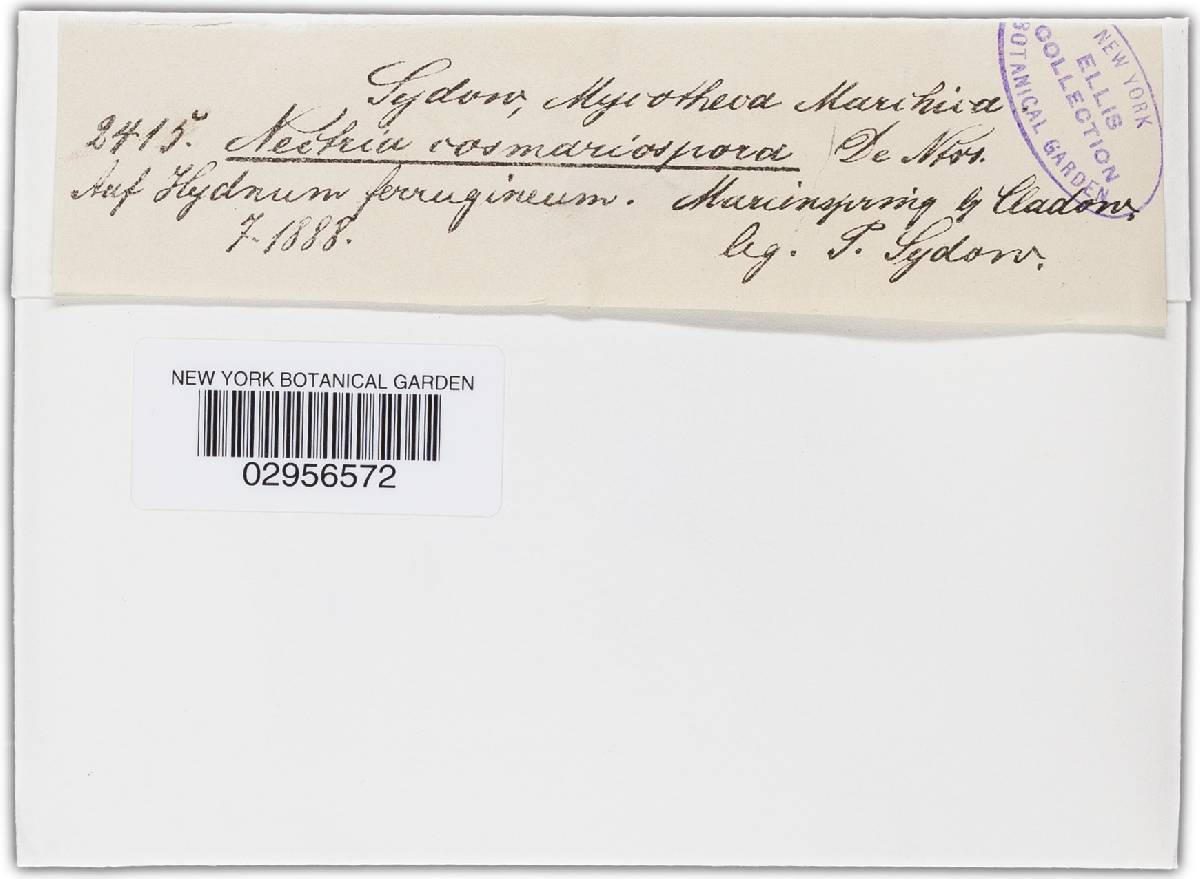 Sydow, Mycotheca Marchica
2415. Nectria cosmariospora De Ntrs.
Auf Hydnum ferrugineum. Marienspring b/ Cladow.
7-1888. leg. P. Sydow.
NEW YORK
BOTANICAL GARDEN
ELLIS
COLLECTION
NEW YORK BOTANICAL GARDEN
02956572